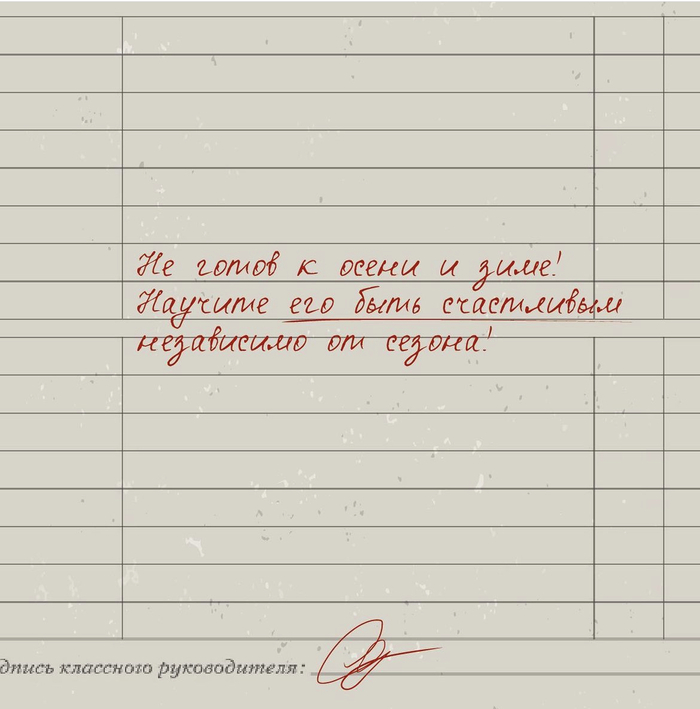 Не готов к осени и зиме!
Научите его быть счастливым
независимо от сезона!
дпись классного руководителя: